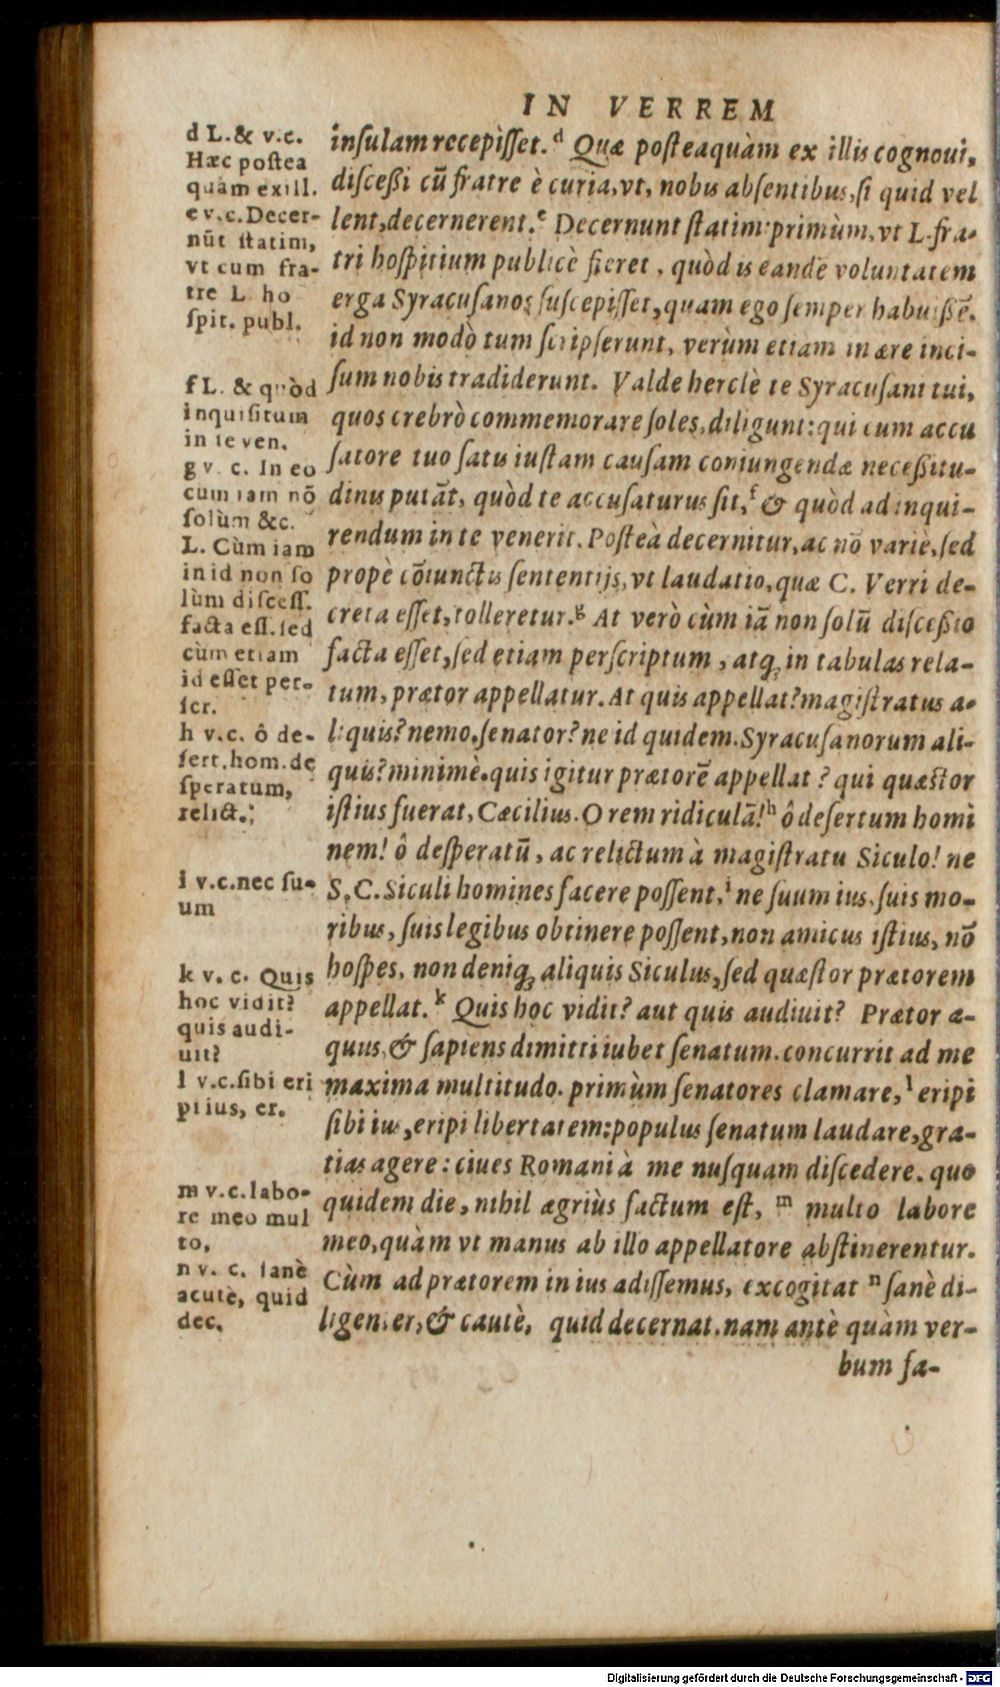 IN VERREM
insulam recepisset.d Quæ posteaquàm ex illis cognoui,
discessi cū fratre è curia, vt, nobis absentibus, si quid vel
lent, decernerent.e Decernunt statim: primùm, vt L. fra-
tri hospitium publicè fieret, quòd is eandē voluntatem
erga Syracusanos suscepisset, quam ego semper habuissē.
id non modò tum scripserunt, verùm etiam in ære inci-
sum nobis tradiderunt. Valde herclè te Syracusani tui,
quos crebrò commemorare soles, diligunt: qui cum accu
satore tuo satis iustam causam coniungendæ necessitu-
dinis putāt, quòd te accusaturus sit,f & quòd ad inqui-
rendum in te venerit. Posteà decernitur, ac nō variè, sed
propè cōiunctis sententijs, vt laudatio, quæ C. Verri de-
creta esset, tolleretur.g At verò cùm iā non solū discessio
facta esset, sed etiam perscriptum, atq; in tabulas rela-
tum, prætor appellatur. At quis appellat? magistratus a-
liquis? nemo. senator? ne id quidem. Syracusanorum ali-
quis? minimè. quis igitur prætorē appellat? qui quæstor
istius fuerat, Cæcilius. O rem ridiculā!h ô desertum homi
nem! ô desperatū, ac relictum à magistratu Siculo! ne
S.C. Siculi homines facere possent,i ne suum ius, suis mo-
ribus, suis legibus obtinere possent, non amicus istius, nō
hospes, non deniq; aliquis Siculus, sed quæstor prætorem
appellat.k Quis hoc vidit? aut quis audiuit? Prætor æ-
quus, & sapiens dimitti iubet senatum. concurrit ad me
maxima multitudo. primùm senatores clamare,l eripi
sibi ius, eripi libertatem: populus senatum laudare, gra-
tias agere: ciues Romani à me nusquam discedere. quo
quidem die, nihil ægriùs factum est, m multo labore
meo, quàm vt manus ab illo appellatore abstinerentur.
Cùm ad prætorem in ius adissemus, excogitat n sanè di-
ligenter, & cautè, quid decernat. nam antè quàm ver-
bum fa-
d L. & v.c.
Hæc postea
quàm ex ill.
e v.c. Decer-
nūt statim,
vt cum fra-
tre L. ho
spit. publ.
f L. & quòd
inquisitum
in te ven.
g v. c. In eo
cum iam nō
solùm &c.
L. Cùm iam
in id non so
lùm discess.
facta ess. sed
cùm etiam
id esset per-
scr.
h v.c. ô de-
sert. hom. de
speratum,
relict.;
i v.c. nec su-
um
k v. c. Quis
hoc vidit?
quis audi-
uit?
l v.c. sibi eri
pi ius, er.
m v.c. labo-
re meo mul
to,
n v. c. sanè
acutè, quid
dec.
Digitalisierung gefördert durch die Deutsche Forschungsgemeinschaft - DFG